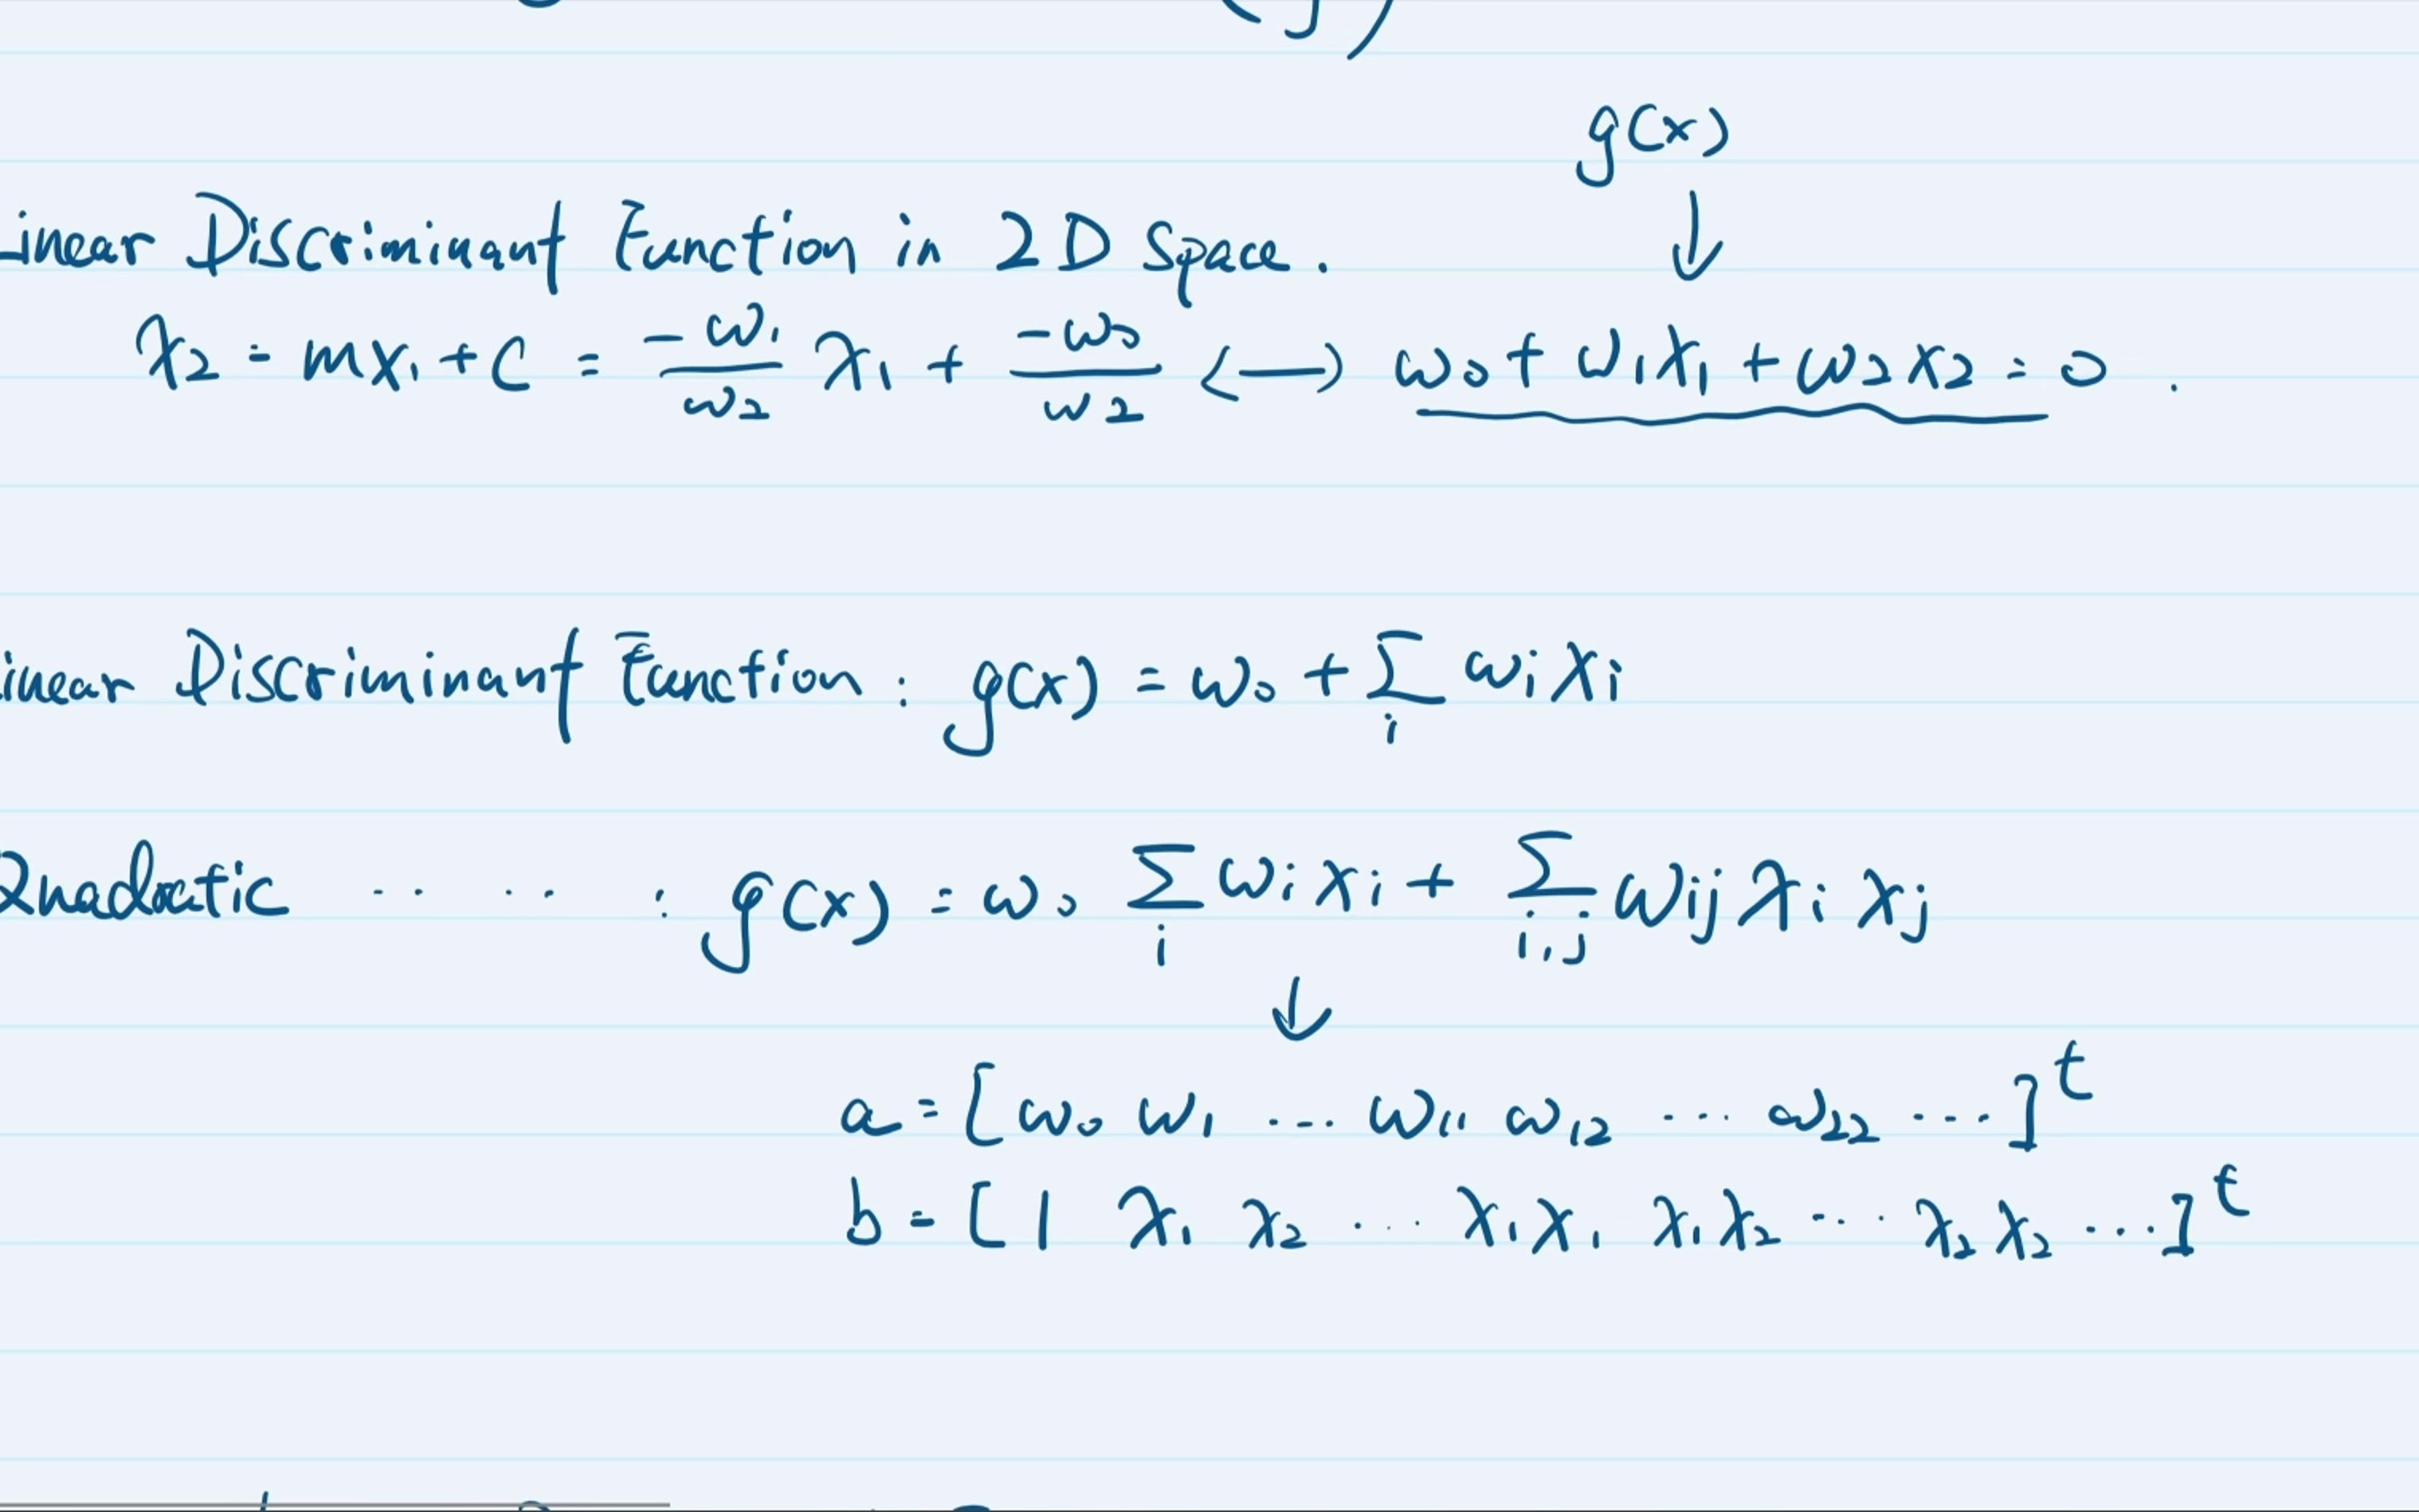 g(x)
↓
Linear Discriminant Function in 2D Space.
x₂ = mx₁ + c = -w₁/w₂ x₁ + -w₀/w₂ ⟷ w₀ + w₁x₁ + w₂x₂ = 0 .
Linear Discriminant Function : g(x) = w₀ + Σᵢ wᵢxᵢ
Quadratic .. .. : g(x) = w₀ Σᵢ wᵢxᵢ + Σᵢ,ⱼ wᵢⱼxᵢxⱼ
↓
a = [w₀ w₁ ... w₁₁ w₁₂ ... w₂₂ ...]ᵗ
b = [1 x₁ x₂ ... x₁x₁ x₁x₂ ... x₂x₂ ...]ᵗ